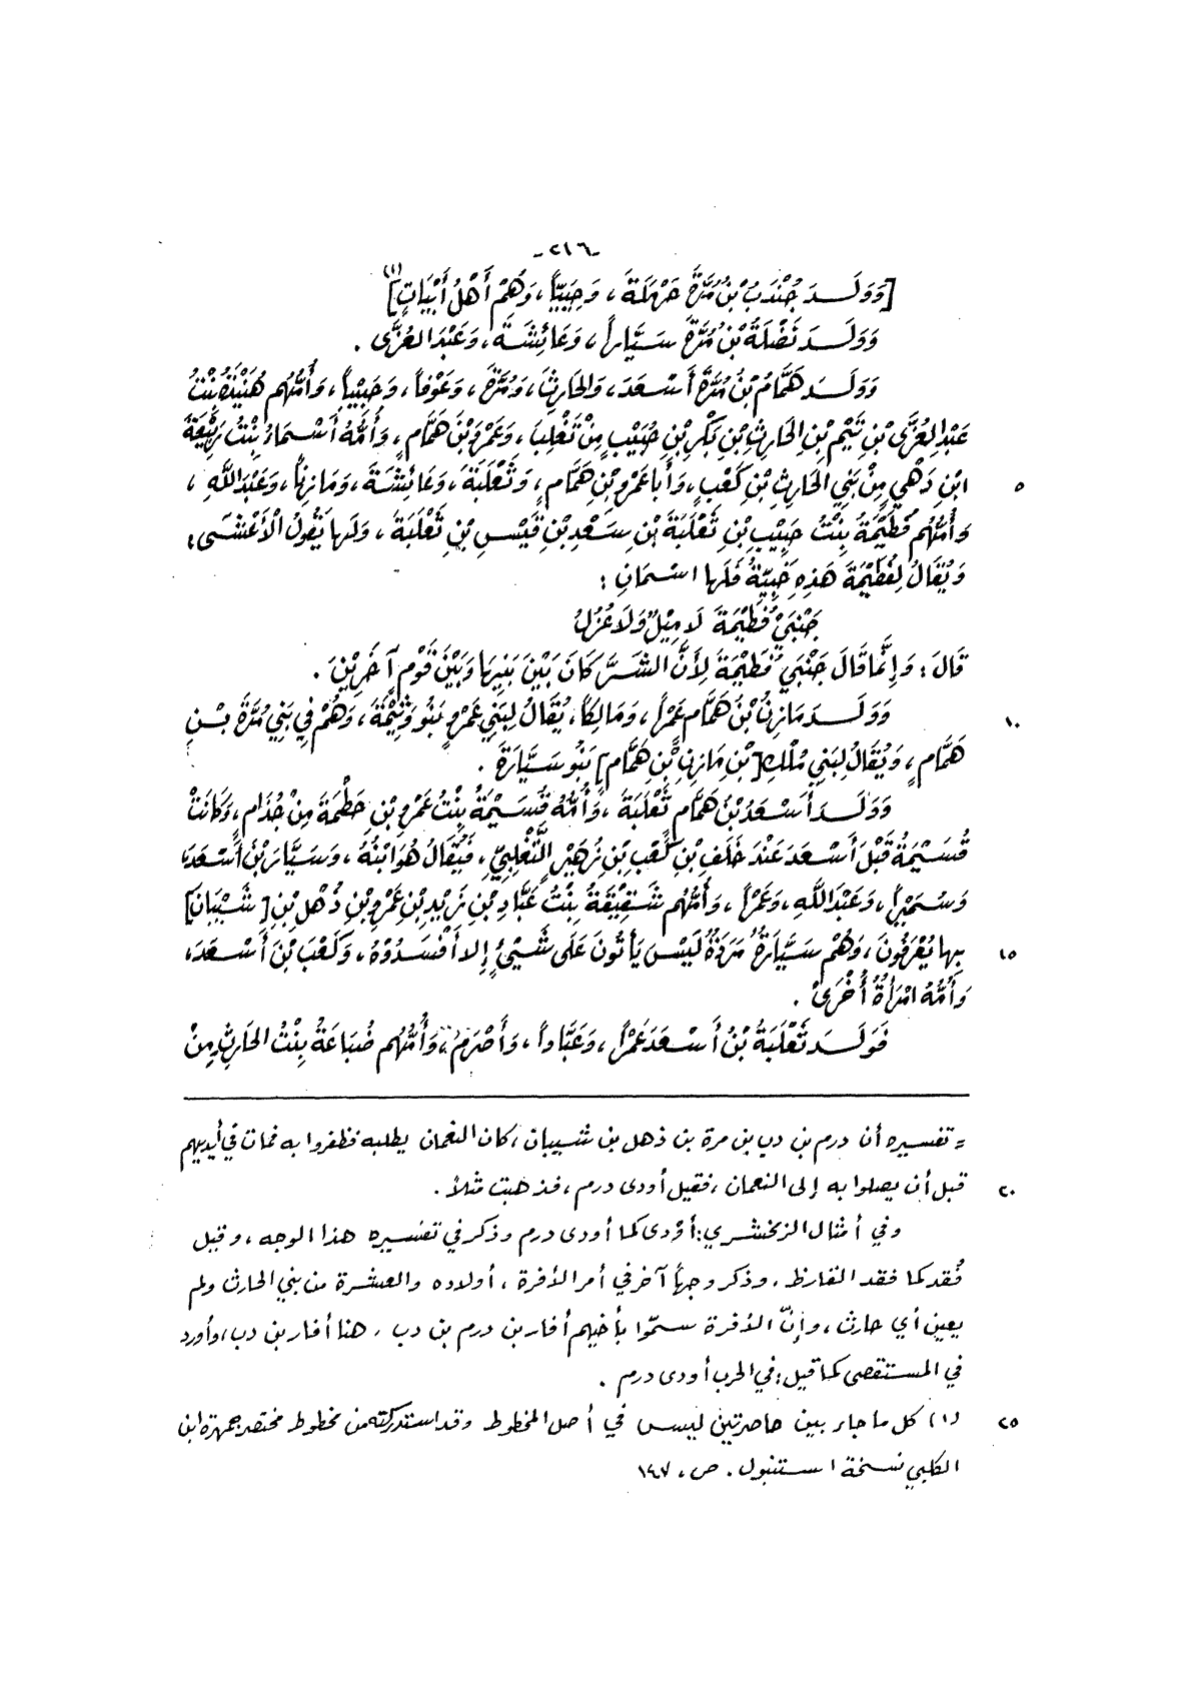 -٢١٦-
[وَوَلَـدَ جُنْدَبُ بْنُ مُرَّةَ جَهْلَةَ، وَحِيَيّاً، وَهُمْ أَهْلُ أَبْيَاتٍ](١)
وَوَلَـدَ نَضْلَةُ بْنُ مُرَّةَ سَيَّاراً، وَعَائِشَةَ، وَعَبْدَ العُزَّى .
وَوَلَـدَ هَمَّامُ بْنُ مُرَّةَ أَسْعَدَ، وَالحَارِثَ، وَمُرَّةَ، وَعَوْفاً، وَحَبِيْباً، وَأُمُّهُم هُنَيْدَةُ بِنْتُ
عَبْدِ العُزَّى بْنِ تَيْمِ بْنِ الحَارِثِ بْنِ بَكْرِ بْنِ حُبَيْبٍ مِنْ تَغْلِبَ، وَعَمْرَو بْنَ هَمَّامٍ، وَأُمُّهُ أَسْمَاءُ بِنْتُ رَبِيْعَةَ
ابْنِ دَهْيٍ مِنْ بَنِي الحَارِثِ بْنِ كَعْبٍ، وَأَبَا عَمْرِو بْنِ هَمَّامٍ، وَثَعْلَبَةَ، وَعَائِشَةَ، وَمَازِناً، وَعَبْدَ اللَّهِ، ٥
وَأُمُّهُم فُطَيْمَةُ بِنْتُ حَبِيْبِ بْنِ ثَعْلَبَةَ بْنِ سَعْدِ بْنِ قَيْسِ بْنِ ثَعْلَبَةَ، وَلَهَا يَقُولُ الأَعْشَى:
وَيُقَالُ لِفُطَيْمَةَ هَذِهِ حَبِيَّةُ فَلَهَا اسْمَانِ :
جَنْبَيْ فُطَيْمَةَ لَا مِيْلٌ وَلَا عُزُلُ
قَالَ: وَإِنَّمَا قَالَ جَنْبَيْ فُطَيْمَةَ لِأَنَّ الشَّرَّ كَانَ بَيْنَ بَنِيهَا وَبَيْنَ قَوْمٍ آخَرِيْنَ .
وَوَلَـدَ مَازِنُ بْنُ هَمَّامٍ عَمْراً، وَمَالِكاً، يُقَالُ لِبَنِي عَمْرٍو بَنُو وَثِيْمَةَ، وَهُمْ فِي بَنِي مُرَّةَ بْنِ ١٠
هَمَّامٍ، وَيُقَالُ لِبَنِي مُلْكِ [بْنِ مَازِنِ بْنِ هَمَّامٍ] بَنُو سَيَّارَةَ .
وَوَلَـدَ أَسْعَدُ بْنُ هَمَّامٍ ثَعْلَبَةَ، وَأُمُّهُ قُسَيْمَةُ بِنْتُ عَمْرِو بْنِ حَطْمَةَ مِنْ جُذَامٍ، وَكَانَتْ
قُسَيْمَةُ قَبْلَ أَسْعَدَ عِنْدَ خَلَفِ بْنِ كَعْبِ بْنِ زُهَيْرٍ التَّغْلِبِيِّ، فَيُقَالُ هُوَ ابْنُهُ، وَسَيَّارَ بْنَ أَسْعَدَ،
وَسُمَيْراً، وَعَبْدَ اللَّهِ، وَعَمْراً، وَأُمُّهُم شَقِيْقَةُ بِنْتُ عَبَّادِ بْنِ زَيْدِ بْنِ عَمْرِو بْنِ ذُهْلِ بْنِ [شَيْبَانَ]
بِهَا يُعْرَفُونَ، وَهُمْ سَيَّارَةٌ مَرَدَةٌ لَيْسَ يَأْتُونَ عَلَى شَيْءٍ إِلا أَفْسَدُوْهُ، وَكَعْبَ بْنَ أَسْعَدَ، ١٥
وَأُمُّهُ امْرَأَةٌ أُخْرَى .
فَوَلَـدَ ثَعْلَبَةُ بْنُ أَسْعَدَ عَمْراً، وَعَبَّاداً، وَأَصْرَمَ، وَأُمُّهُم ضُبَاعَةُ بِنْتُ الحَارِثِ مِنْ
= تفسيره أن درم بن دب بن مرة بن ذهل بن شيبان، كان النعمان يطلبه فظفروا به فمات في أيديهم
قبل أن يصلوا به إلى النعمان، فقيل أودى درم، فذهبت مثلاً . ٢٠
وفي أمثال الزمخشري: أودى كما أودى درم وذكر في تفسيره هذا الوجه، وقيل
فُقد كما فقد القارظ، وذكر وجهاً آخر في أمر الأفرة، أولاده والعشرة من بني الحارث ولم
يعين أي حارث، وإنّ الأفرة سمّوا بأخيهم أفار بن درم بن دب، هنا أفار بن دب، وأورد
في المستقصى كما قيل: في الحرب أودى درم .
(١) كل ما جاء بين حاصرتين ليس في أصل المخطوط وقد استدركته من مخطوط مختصر جمهرة ابن ٢٥
الكلبي نسخة استنبول . ص، ١٩٧